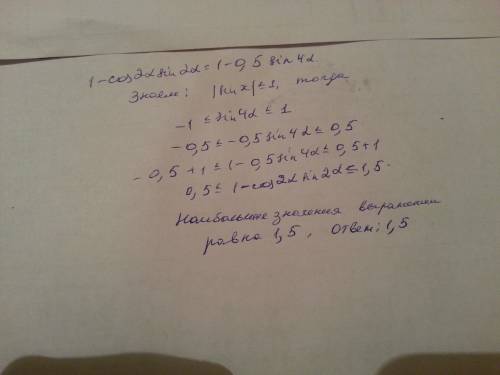 1-cos2α sin2α = 1-0,5 sin 4α.
Знаем: |sin x| ≤ 1, тогда
-1 ≤ sin4α ≤ 1
-0,5 ≤ -0,5 sin 4α ≤ 0,5
-0,5 + 1 ≤ 1-0,5 sin4α ≤ 0,5+1
0,5 ≤ 1-cos2α sin2α ≤ 1,5.
Наибольшие значения выражения
равна 1,5, Ответ: 1,5